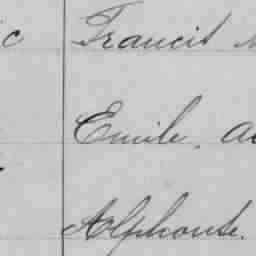 Francis
Emile, a
Alphonse.